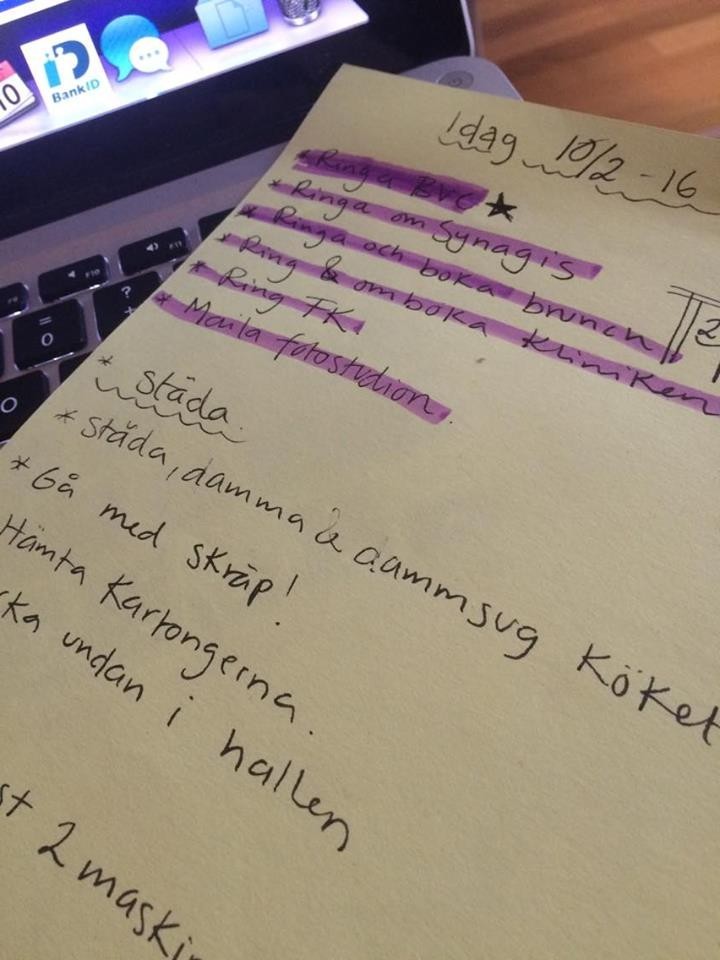 10
BankID
F10
F11
?
=
0
Idag 10/2 -16
* Ringa BVC ★
* Ringa om Synagis
* Ringa och boka brunch
* Ring & omboka kliniken
* Ring FK.
* Maila fotostudion.
2
* Städa.
* Städa, damma & dammsug köket
* Gå med skräp!
Hämta Kartongerna.
undan i hallen
2 maski